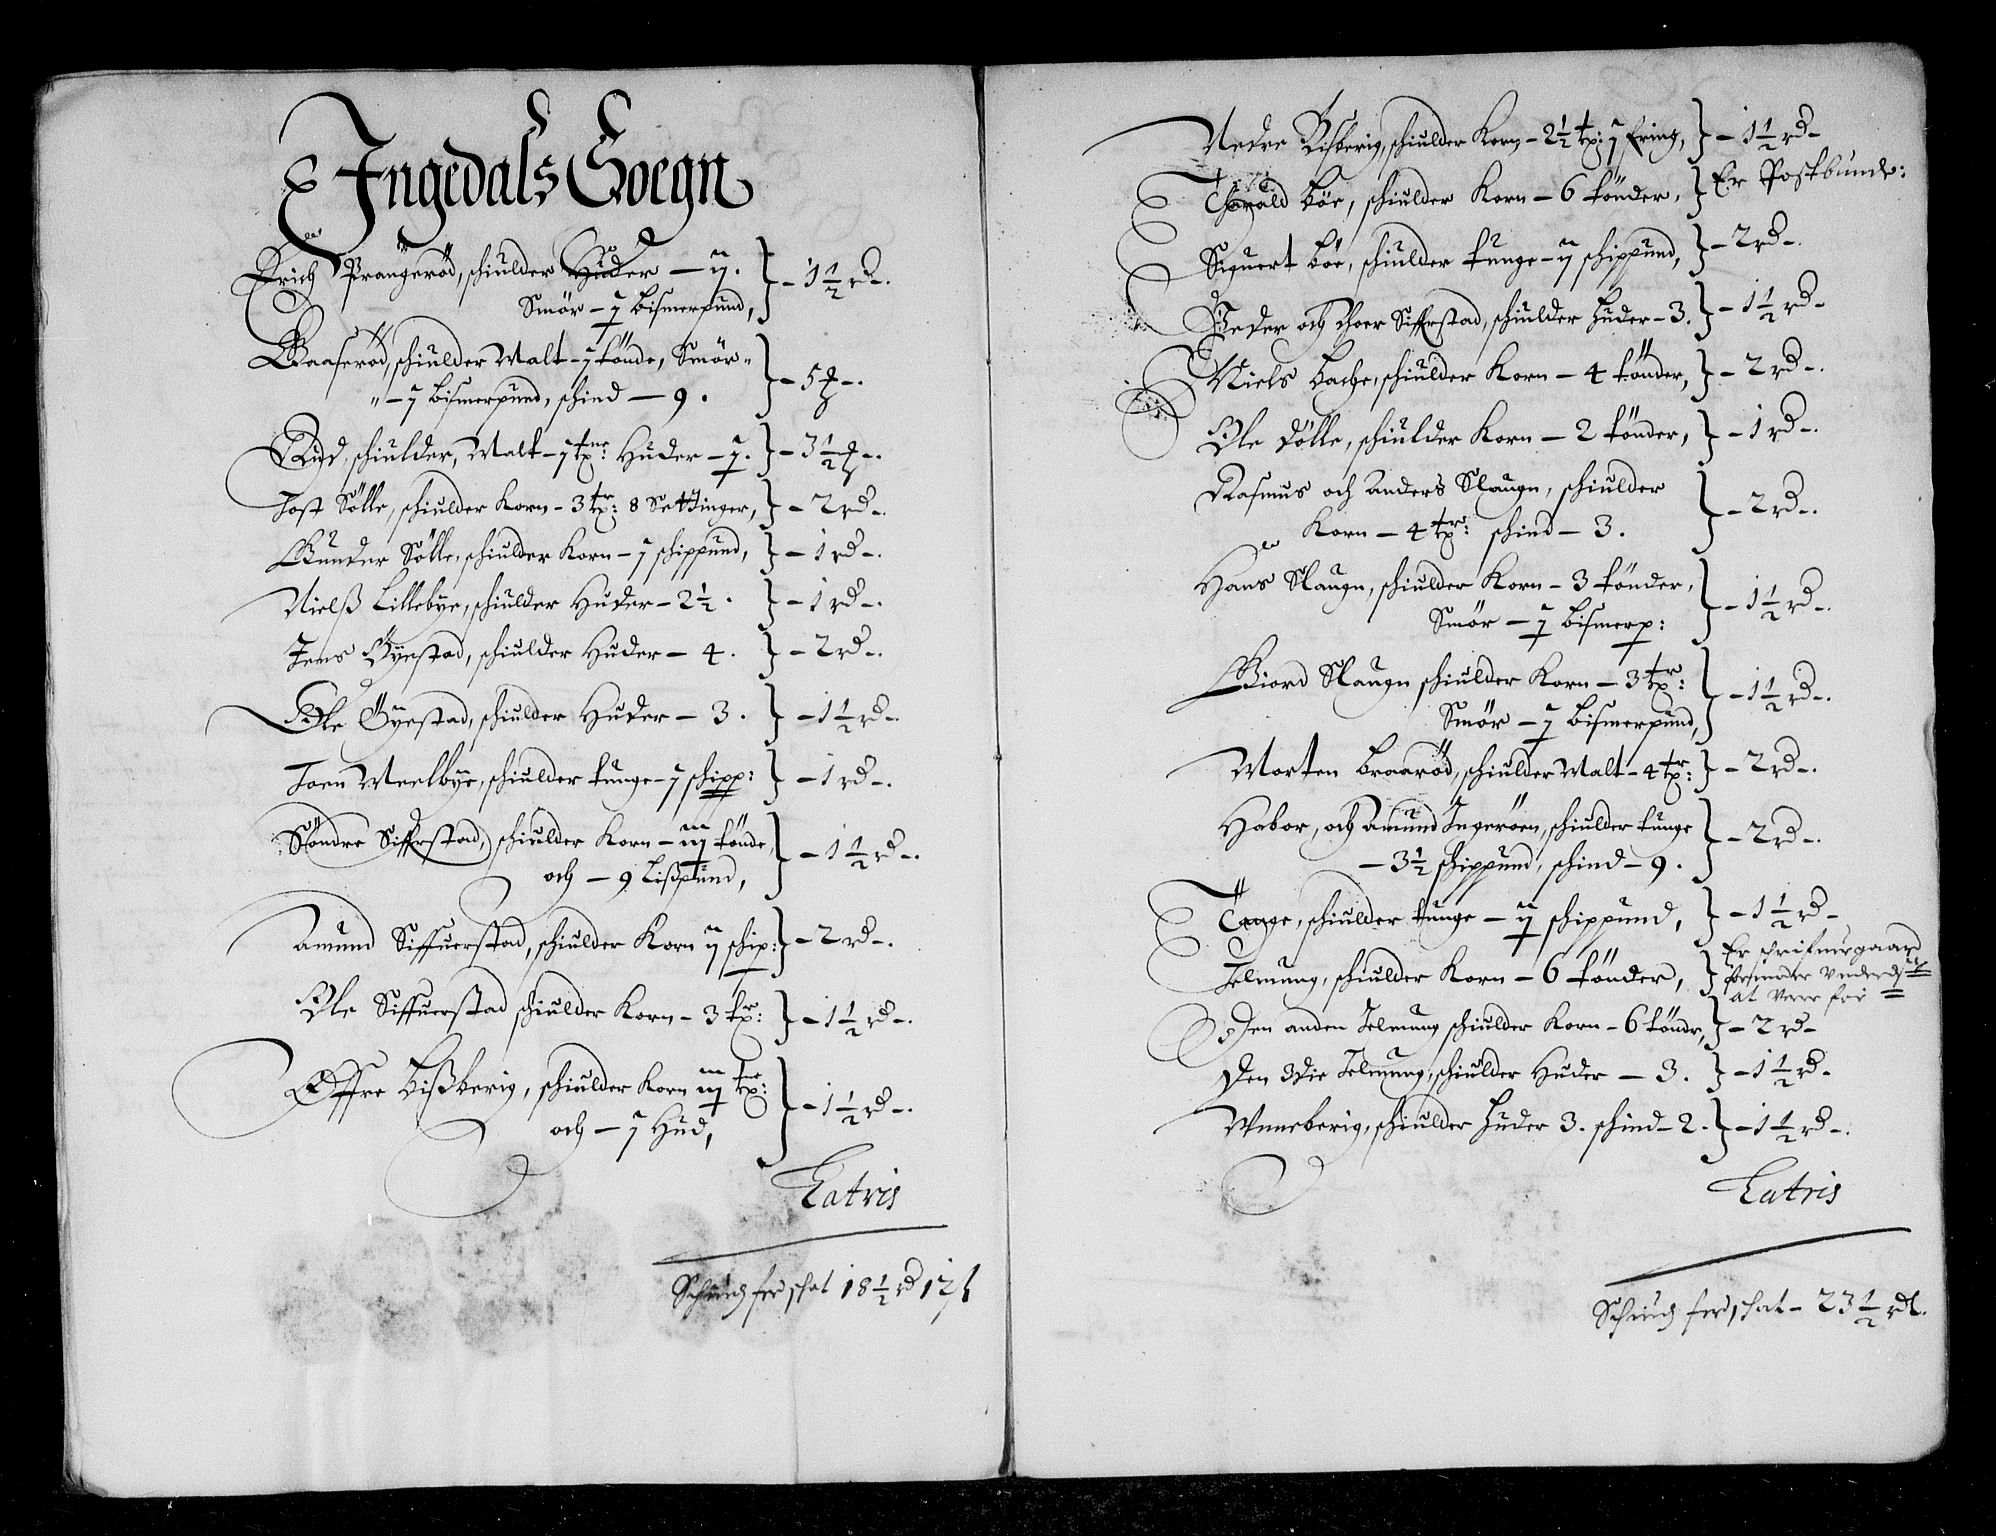 Ingedals Soegn
Erich Prangerød, schiulder Huder – ij. } – 1½ rd –.
Smör – j bismerpund,
Baaserød, schiulder Malt – j tönde, Smör „
„ – j bismerpund, schind – 9. } – 5 ꝼ –.
Rud, schiulder, Malt – j tne: Huder – j. } – 3½ ꝼ –.
Jost Sölle, schiulder Korn – 3 tr: 8 Settinger, } – 2 rd –.
Gunder Sölle, schiulder Korn – j schippund, } – 1 rd –.
Nielß Lillebye, schiulder Huder – 2½. } – 1 rd –.
Jens Öyestad, schiulder Huder – 4. } – 2 rd –.
Ole Öyestad, schiulder Huder – 3. } – 1½ rd –.
Joen Meelbye, schiulder tunge – j schipp: } – 1 rd –.
Söndre Sifferstad, schiulder Korn – iij tönde,
och – 9 Lißpund, } – 1½ rd –.
Amund Siffuerstad, schiulder Korn ij schip: } – 2 rd –.
Ole Siffuerstad schiulder Korn – 3 tr: } – 1½ rd –.
Øffre bißberig, schiulder Korn iij tne:
och – j Hud, } – 1½ rd –.
Latris
18½ rd 12 ß
Nedre Bisberig, schiulder Korn – 2½ t: j fering, } – 1½ rd –
Tharald böe, schiulder Korn – 6 tönder, } Er Postbunde:
Siguert böe, schiulder tunge – ij schippund, } – 2 rd –.
Peder och Thoer Sifferstad, schiulder huder – 3. } – 1½ rd –
Niels bache, schiulder Korn – 4 tönder, } – 2 rd –.
Ole dölle, schiulder Korn – 2 tönder, } – 1 rd –.
Rasmus och Anders Slaugn, schiulder
Korn – 4 tr: schind – 3. } – 2 rd –.
Hans Slaugn, schiulder Korn – 3 tönder,
Smör – j bismerp: } – 1½ rd –.
Giord Slaugn schiulder Korn – 3 tr:
Smör – j bismerpund, } – 1½ rd –.
Morten braarød, schiulder Malt – 4 tr: } – 2 rd –.
Habor, och Amund Ingeröen, schiulder tunge
– 3½ schippund, schind – 9. } – 2 rd –.
Tange, schiulder tunge – ij schippund, } – 1½ rd –
Jelnung, schiulder Korn – 6 tönder, } Er schrifuergaard
at vere fri
Den anden Jelnung schiulder Korn – 6 tönder, } – 2 rd –
Den 3die Jelnung, schiulder Huder – 3. } – 1½ rd –
Vnneberig, schiulder huder 3. schind – 2. } – 1½ rd –.
Latris
23½ rd.